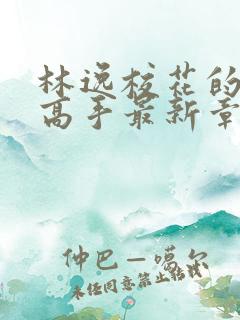 林逸校花的
高手最新章
仲巴—噶尔
未经同意禁止转载